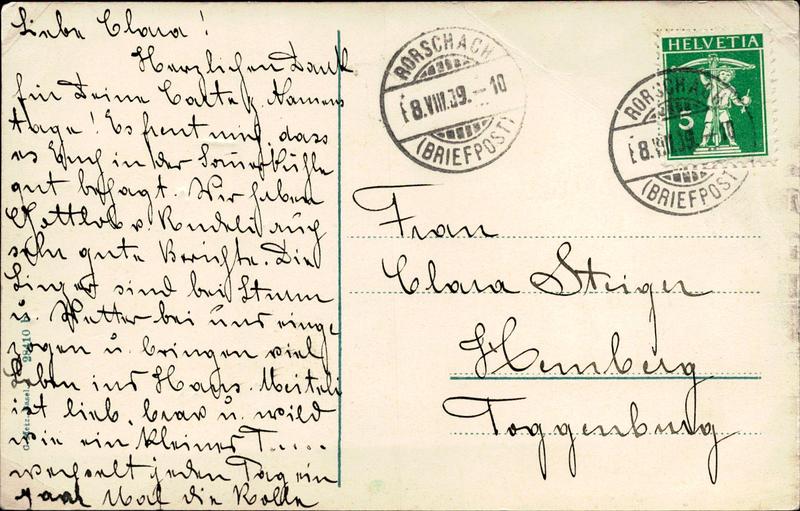 Liebe Clara!
Herzlichen Dank
für Deine Karte z. Namens
tage! Es freut mich, dass
es Euch in der
gut behagt. Wir haben
Gottlob v. Ruedeli auch
sehr gute Berichte. Die
sind bei Sturm
u. Wetter bei uns einge
zogen u. bringen viel
Leben ins Haus. Meiteli
ist lieb, brav u. wild
wie ein kleiner T.....
wechselt jeden Tag ein
paar Mal die Rolle
RORSCHACH
8.VIII.09.-10
(BRIEFPOST)
HELVETIA
5
RORSCHACH
8.VIII.09.-10
(BRIEFPOST)
Frau
Clara Steiger
Hemberg
Toggenburg